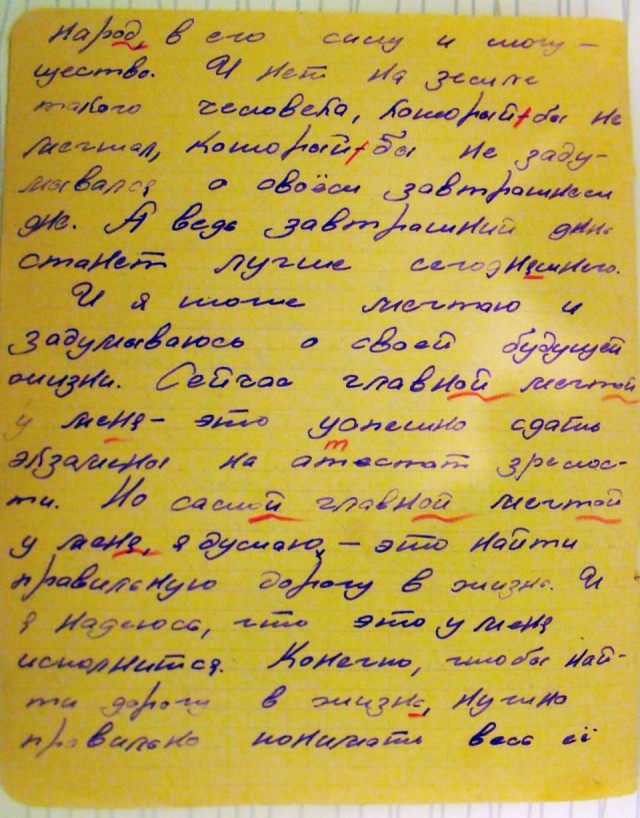 народ, в его силу и могу-
щество. И нет на земле
такого человека, который бы не
мечтал, который бы не заду-
мывался о своём завтрашнем
дне. А ведь завтрашний день
станет лучше сегодняшнего.
И я тоже мечтаю и
задумываюсь о своей будущей
жизни. Сейчас главной мечтой
у меня - это успешно сдать
экзамены на аттестат зрелос-
ти. Но самой главной мечтой
у меня, я думаю, - это найти
правильную дорогу в жизни. И
я надеюсь, что это у меня
исполнится. Конечно, чтобы най-
ти дорогу в жизни, нужно
правильно понимать весь её